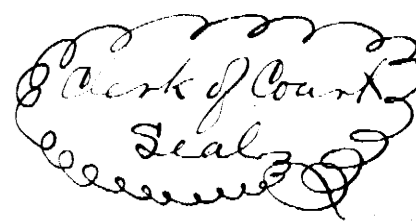 Clerk of Court
Seal